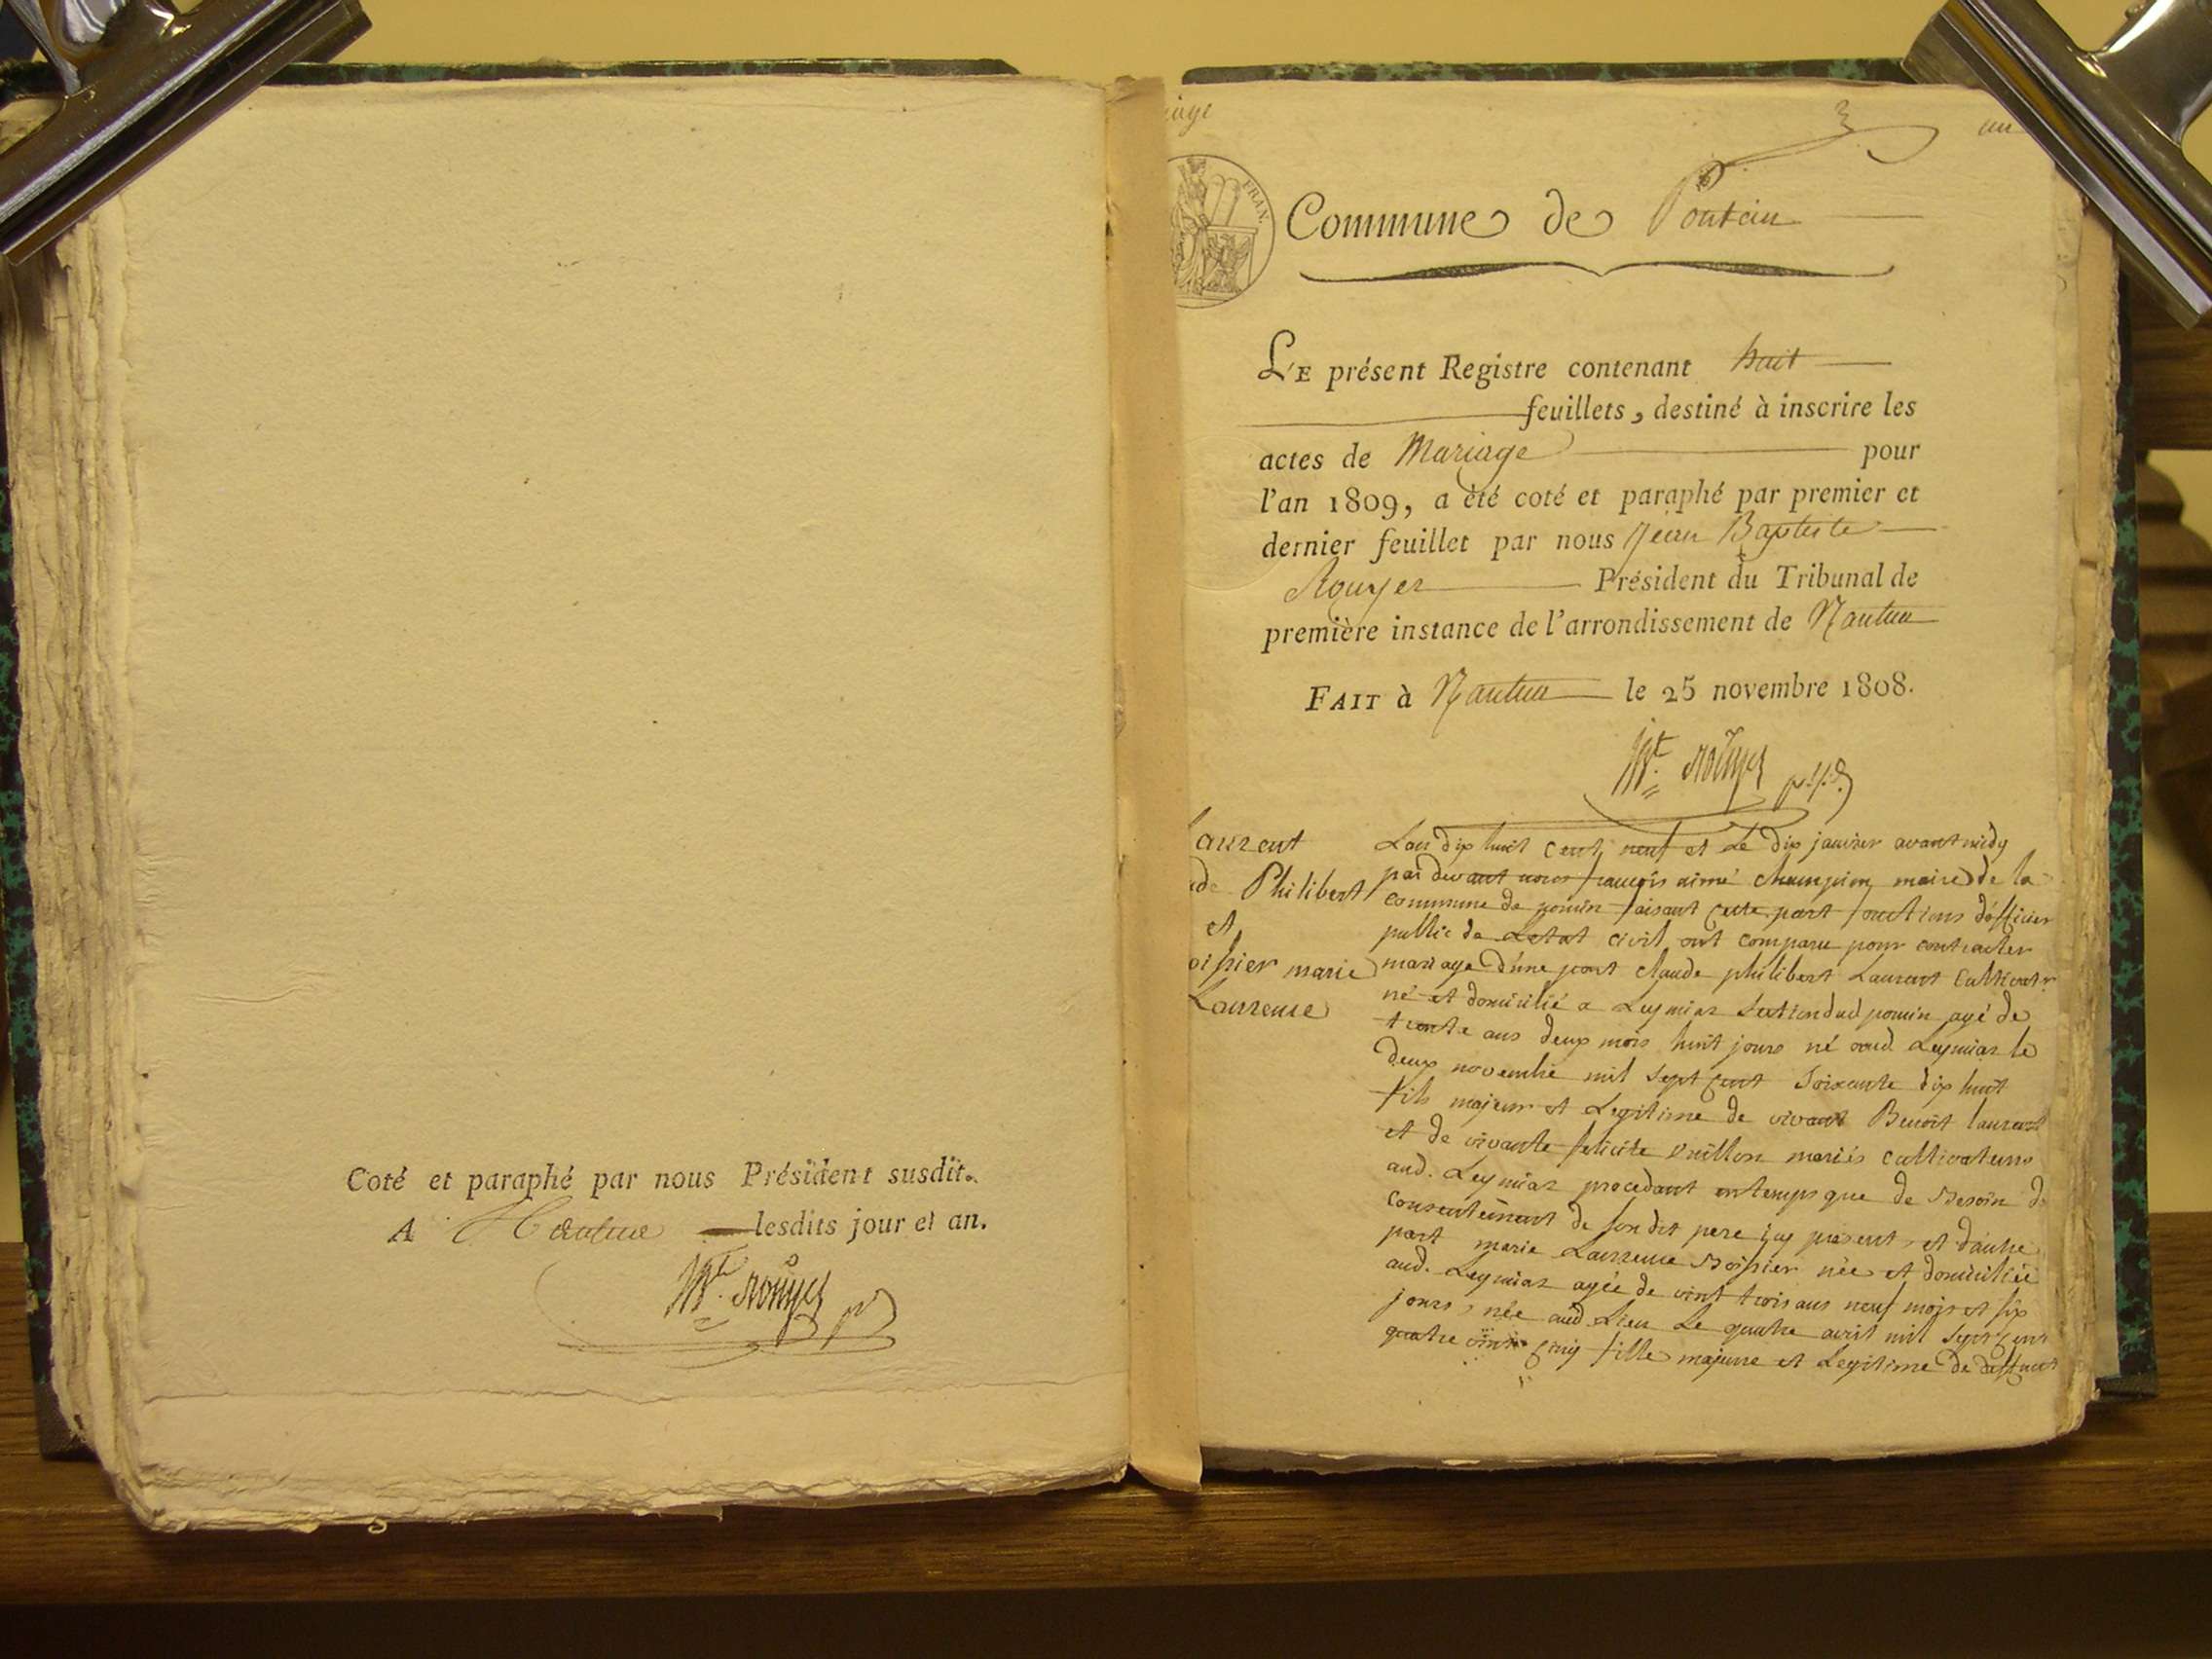 Coté et paraphé par nous Président susdit.
A Nantua lesdits jour et an.
Rouyer
iage
FRAN.
Commune de Poncin
LE présent Registre contenant huit
feuillets, destiné à inscrire les
actes de Mariage pour
l'an 1809, a été coté et paraphé par premier et
dernier feuillet par nous Jean Baptiste
Rouyer Président du Tribunal de
première instance de l'arrondissement de Nantua
FAIT à Nantua le 25 novembre 1808.
Rouyer
Laurent
ude Philibert
et
oissier marie
Laurence
L'an dix huit cent neuf et le dix janvier avant midy
par devant nous françois aimé Champion maire de la
commune de poncin faisant cette part fonctions d'officier
public de Letat civil ont comparu pour contracter
mariage d'une part claude philibert Laurent Cultivatr
né et domicilié a Leymiaz Section dud poncin agé de
trente ans deux mois huit jours né aud. Leymiaz le
deux novembre mil sept cent soixante dix huit
fils majeur et Legitime de vivant Benoit laurent
et de vivante felicite Vuillon mariés cultivateurs
aud. Leymiaz procedant entemps que de Besoin du
consentement de son dit pere icy present, et d'autre
part marie Laurence Boissier née et domiciliée
aud. Leymiaz agée de vint trois ans neuf mois et six
jours, née aud. Lieu Le quatre avril mil sept cent
quatre vint cinq fille majeure et Legitime de deffunt